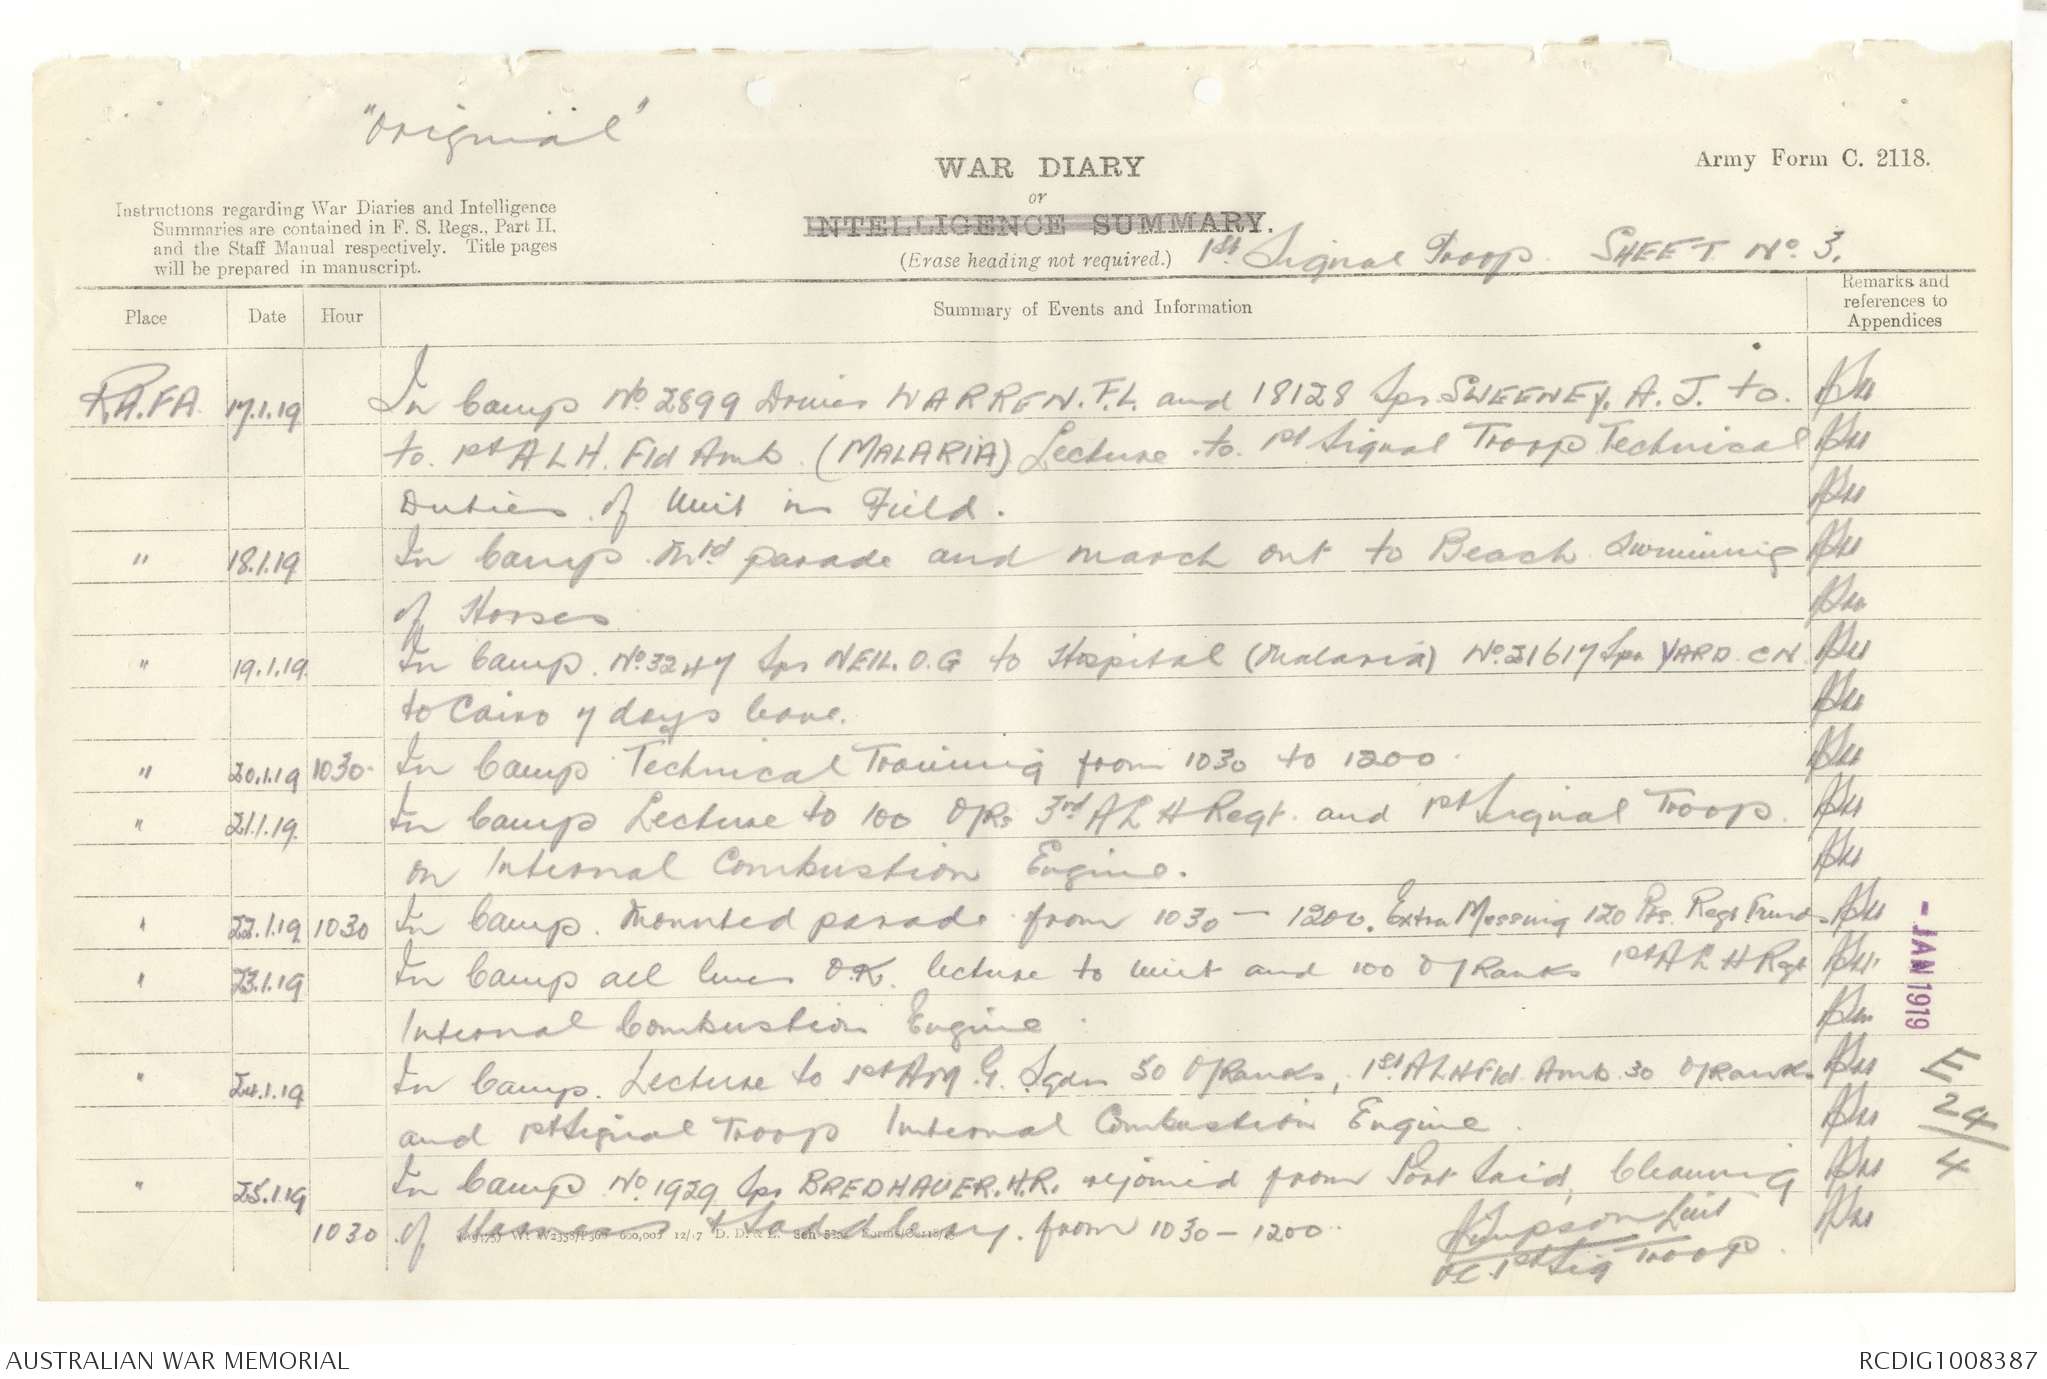 "Original"
Army Form C. 2118.
WAR DIARY
or
INTELLIGENCE SUMMARY.
(Erase heading not required.)
1st. Signal Troop. SHEET No. 3.
Instructions regarding War Diaries and Intelligence
Summaries are contained in F. S. Regs., Part II,
and the Staff Manual respectively. Title pages
will be prepared in manuscript.
Place Date Hour Summary of Events and Information Remarks and references to Appendices
RAFA 17.1.19 In Camp No 2899 Driver WARREN. F.L. and 18128 Spr SWEENEY. A. J. to.
to. 1st A L H. Fld Amb. (MALARIA) Lecture to. 1st Signal Troop Technical
Duties of Unit in Field.
" 18.1.19 In Camp. Mtd parade and march out to Beach Swimming
of Horses
" 19.1.19. In Camp. No 3247 Spr NEIL. O.G to Hospital (Malaria) No. 21617 Spr. YARD. CN.
to Cairo 7 days leave.
" 20.1.19 1030. In Camp Technical Training from 1030 to 1200.
" 21.1.19. In Camp Lecture to 100 O/Rs 3rd A L H Regt. and 1st Signal Troop.
on Internal Combustion Engine.
" 22.1.19 1030 In Camp. Mounted parade from 1030 - 1200. Extra Messing 120 Pts. Regt Funds
" 23.1.19 In Camp all lines O.K. lecture to unit and 100 O/Ranks 1st A L H Regt
Internal Combustion Engine
" 24.1.19 In Camp. Lecture to 1st A M. G. Sqdn 50 O/Ranks, 1st. A L H Fld Amb. 30 O/Ranks
and 1st Signal Troop Internal Combustion Engine.
" 25.1.19 In Camp No. 1929 Spr BREDHAUER. H.R. rejoined from Port Said, Cleaning
1030 of Harness & Saddlery. from 1030 - 1200.
Simpson Lieut
OC. 1st Sig Troop.
- JAN 1919
E
24/4
AUSTRALIAN WAR MEMORIAL
RCDIG1008387